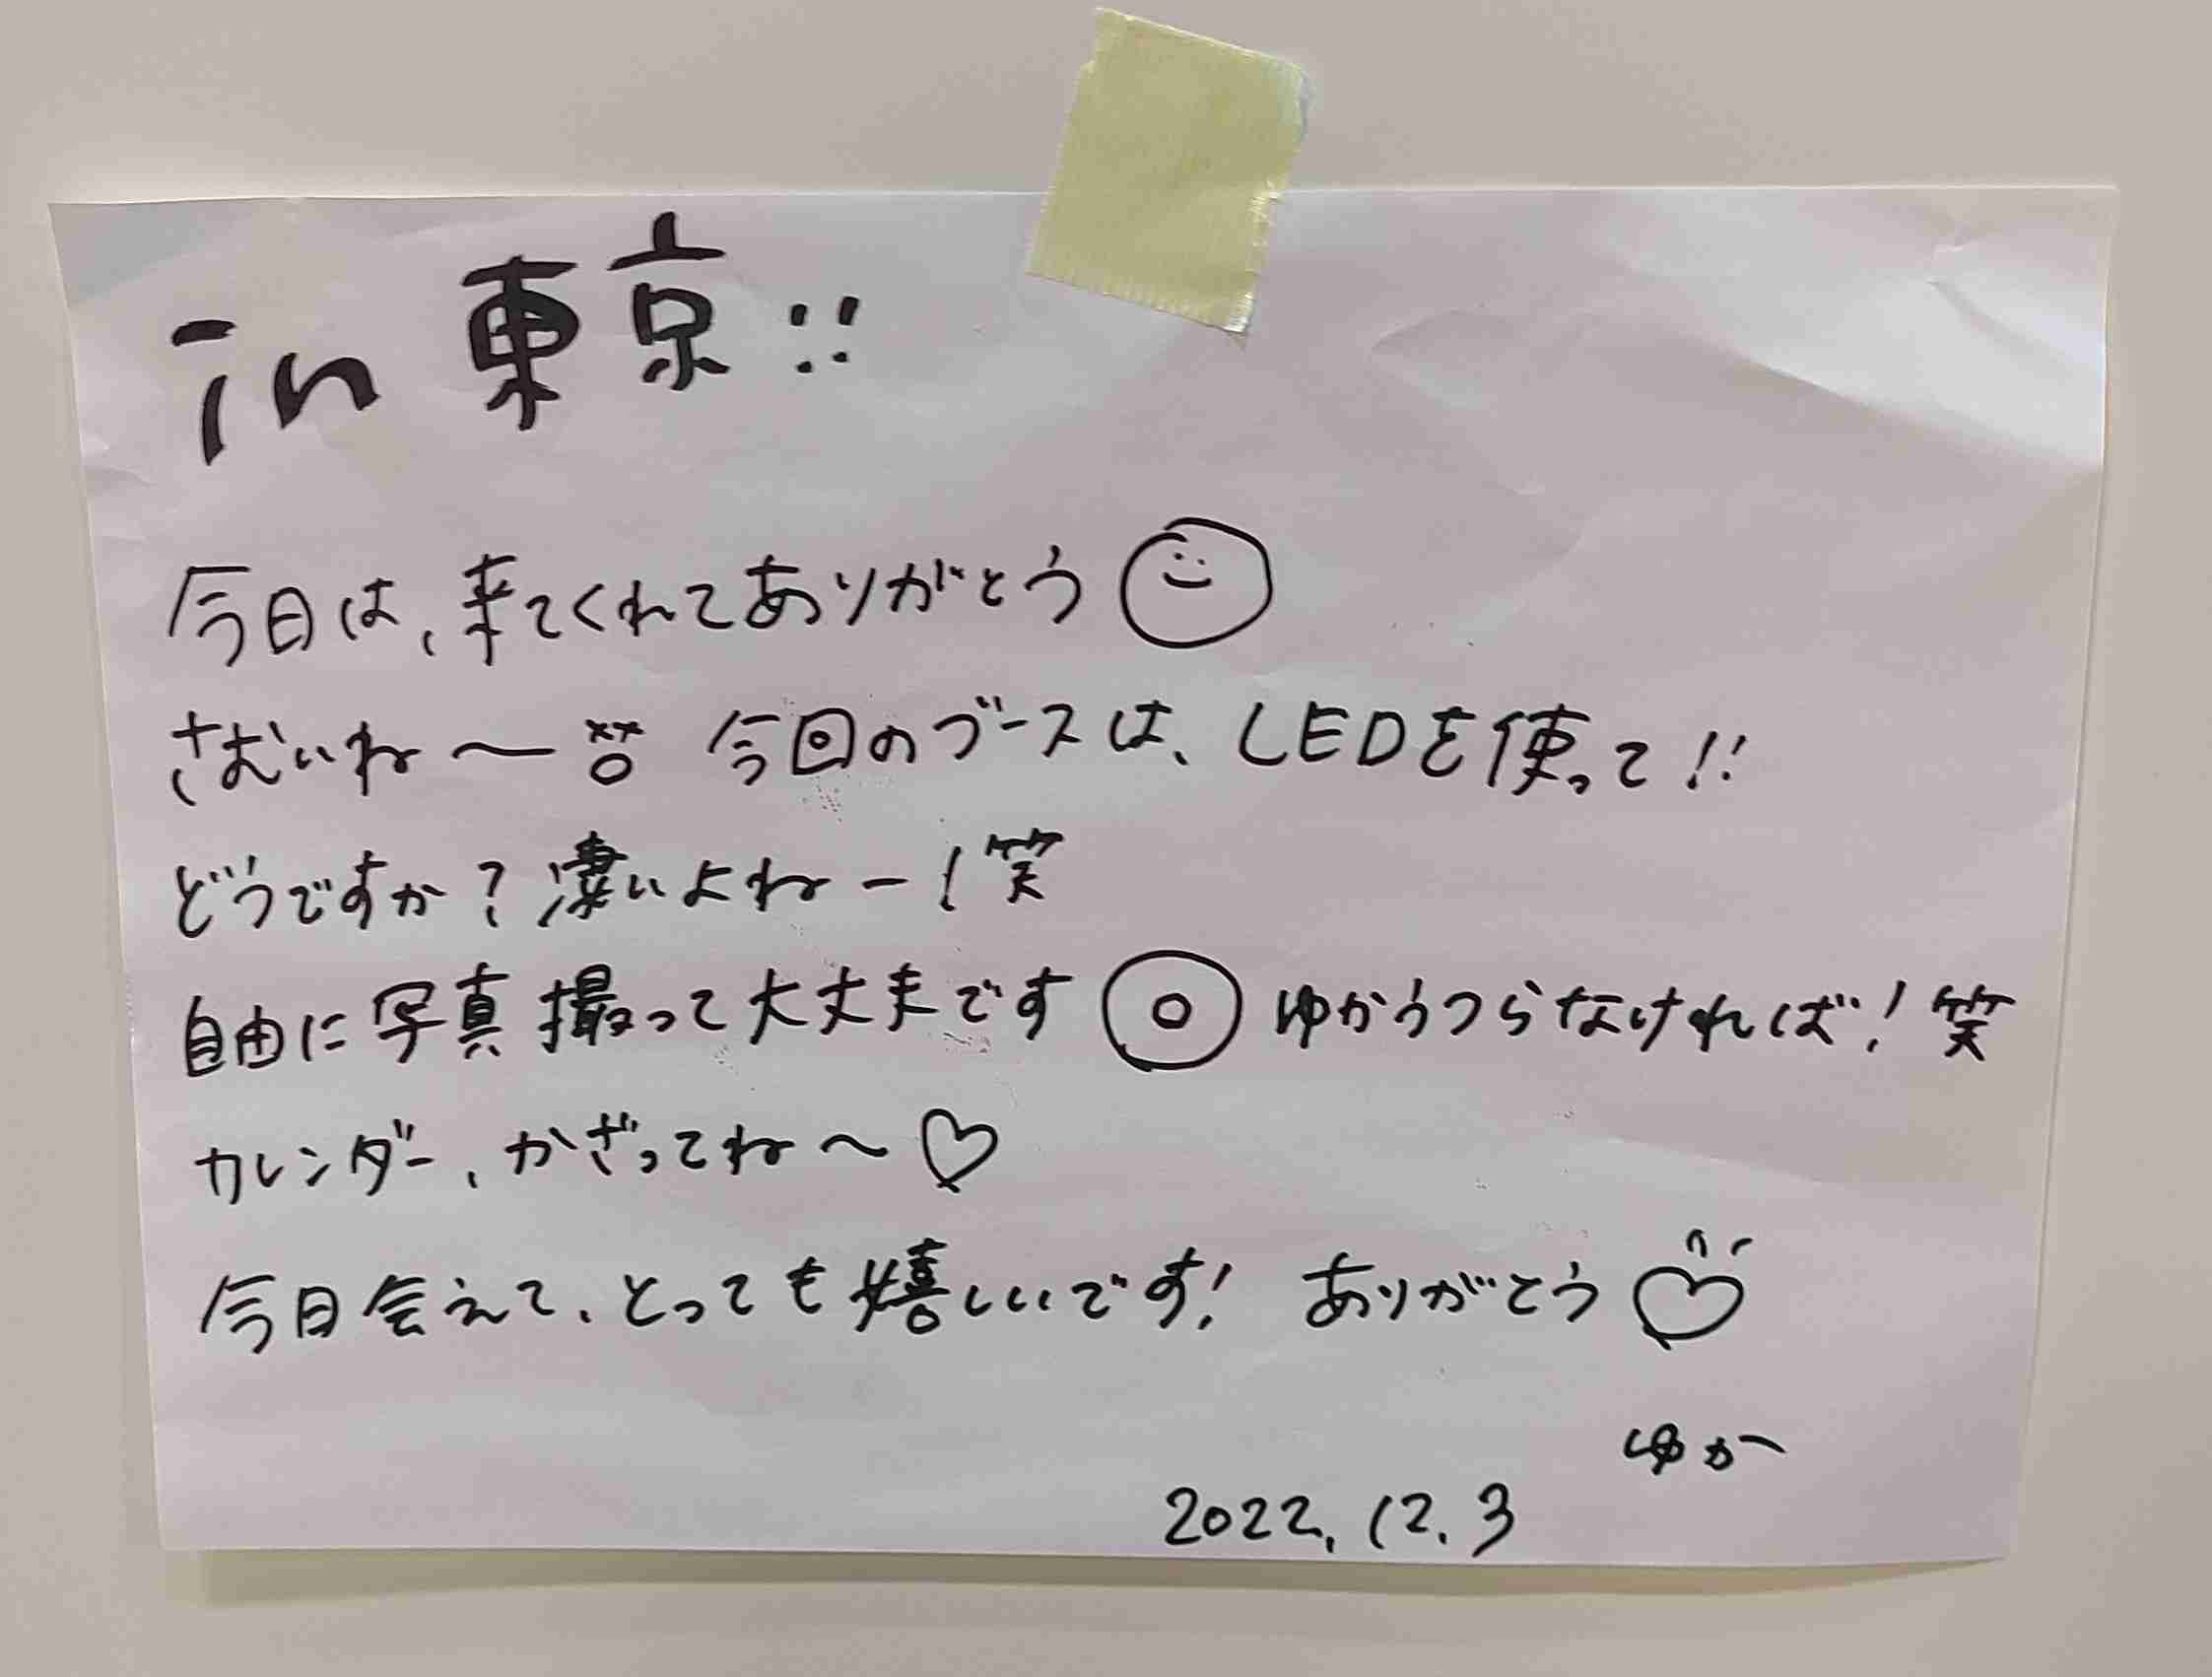 in 東京!!
今日は、来てくれてありがとう
さむいね〜 今回のブースは、LEDを使って!!
どうですか?凄いよねー!笑
自由に写真撮って大丈夫です ゆかうつらなければ!笑
カレンダー、かざってね〜♡
今日会えて、とっても嬉しいです! ありがとう♡
ゆか
2022.12.3